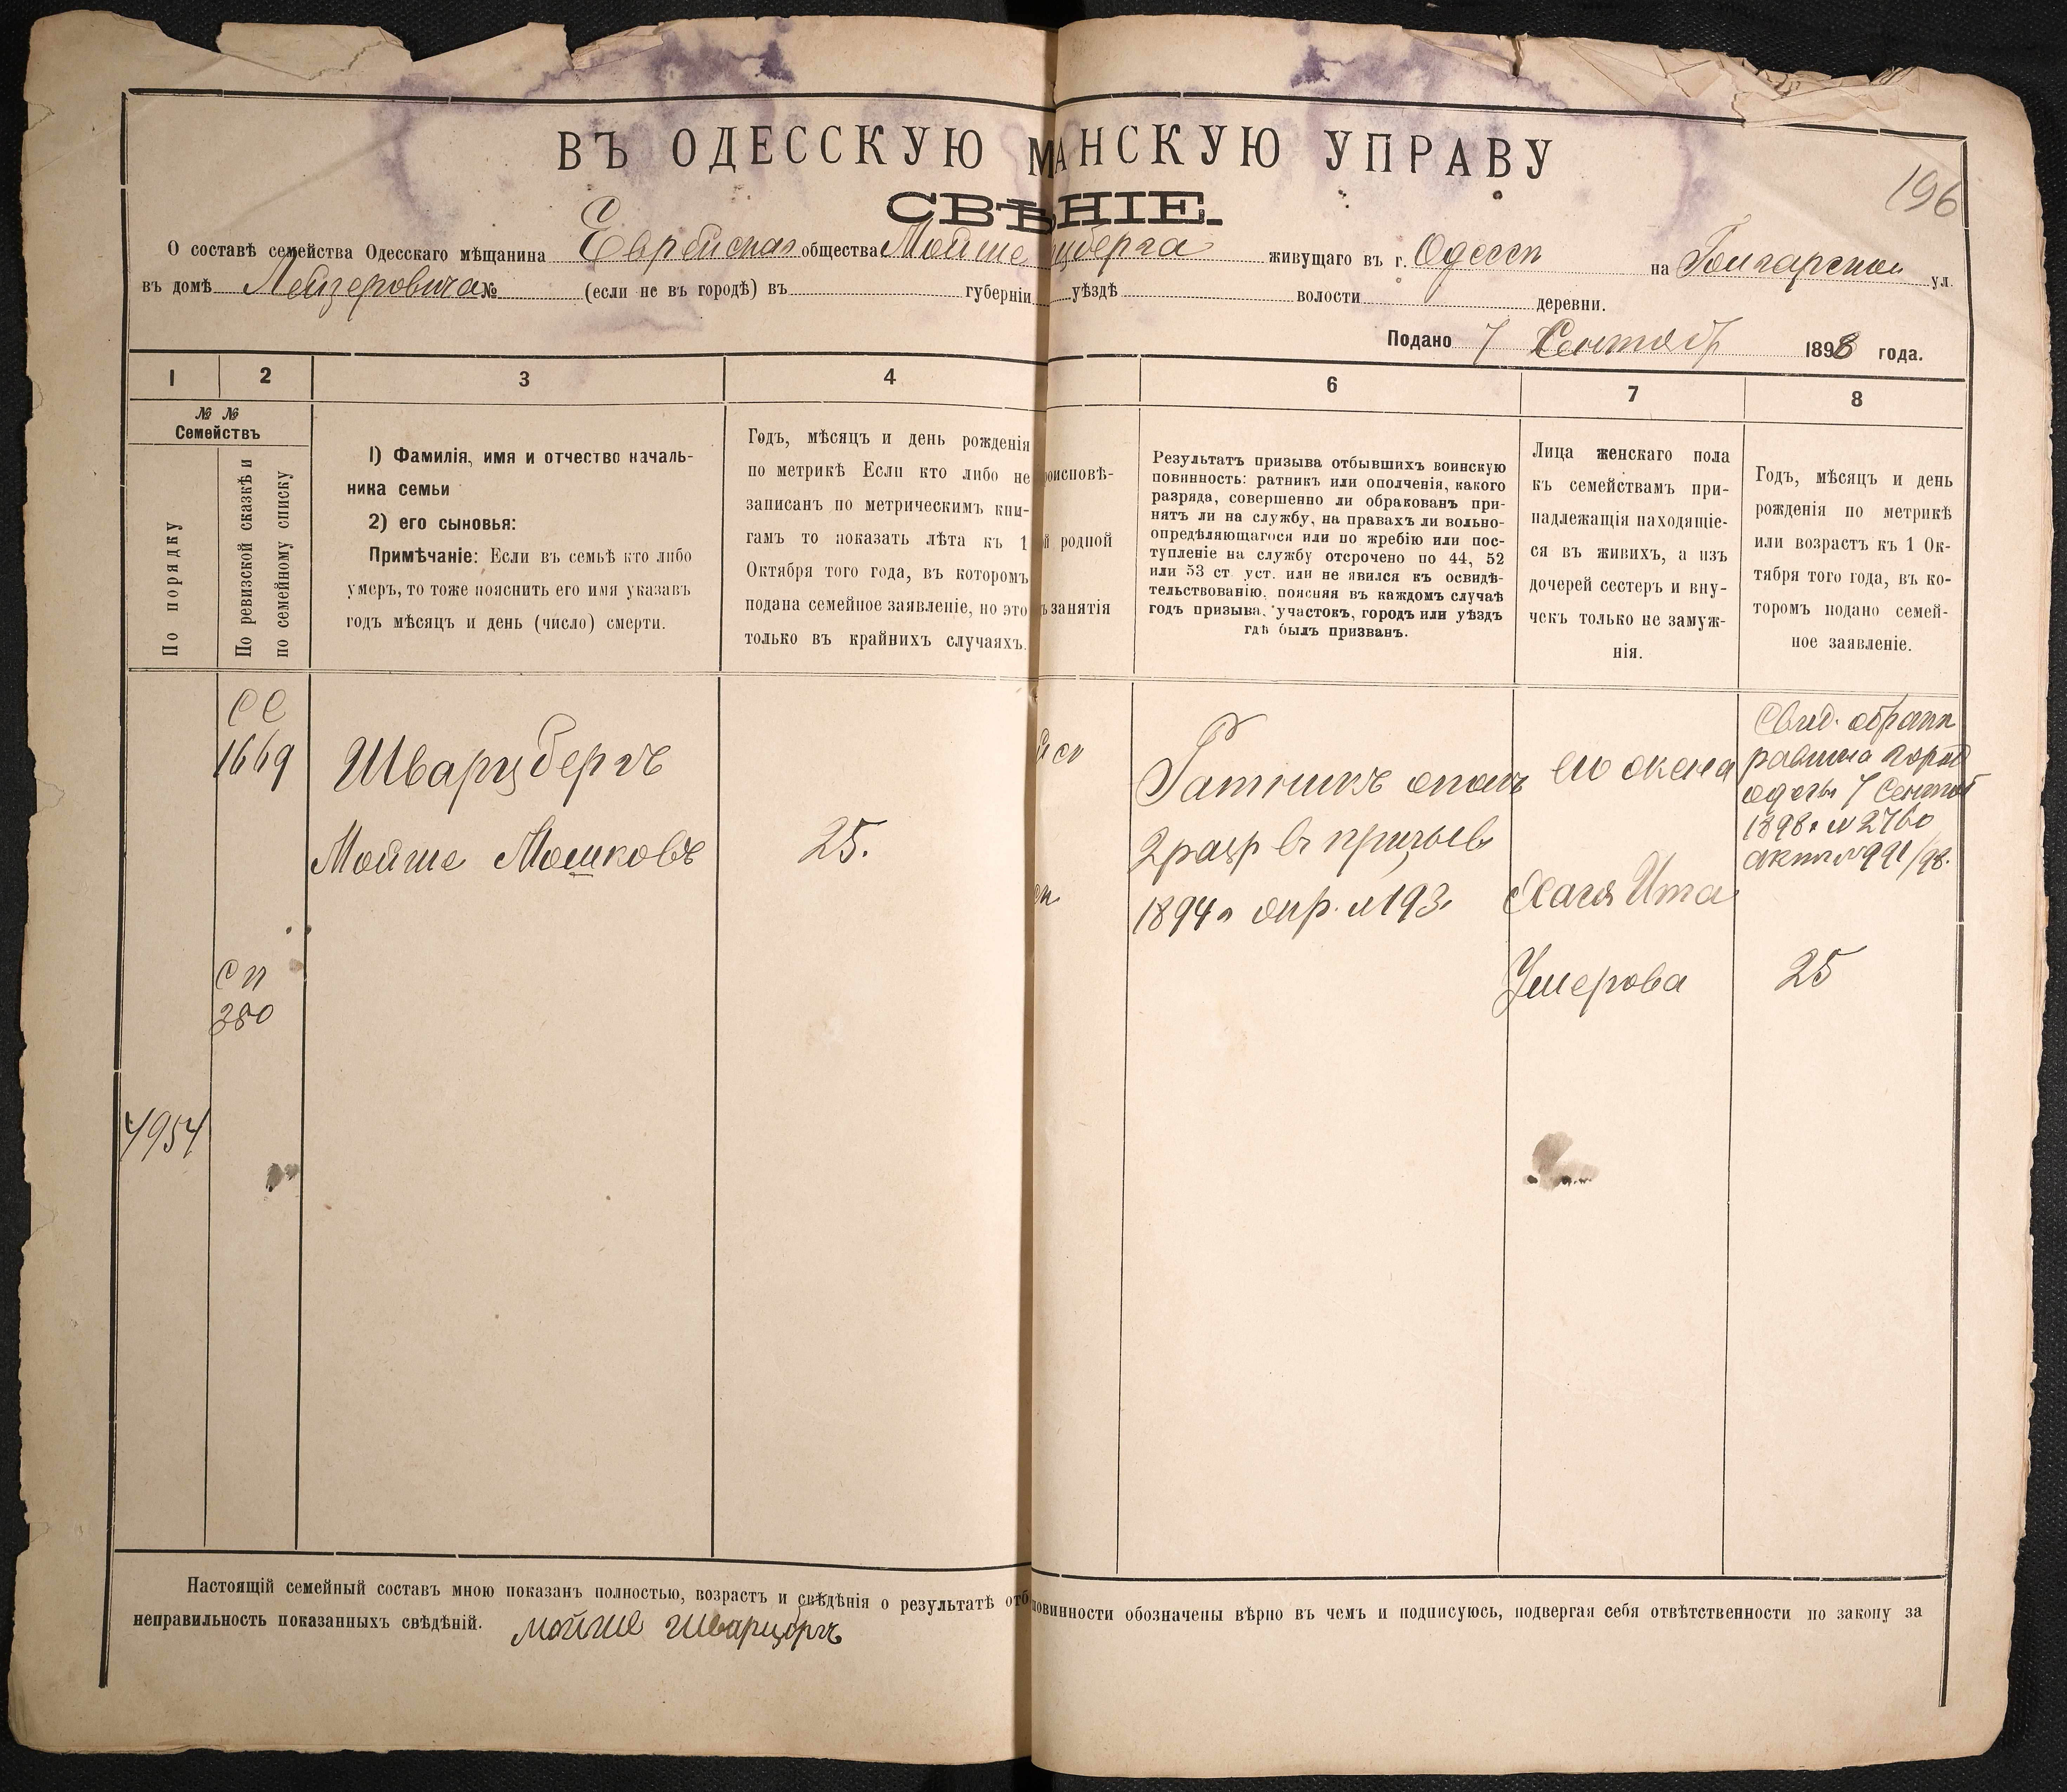 196
ВЪ ОДЕССКУЮ М АНСКУЮ УПРАВУ
СВѢ НІЕ.
О составѣ семейства Одесскаго мѣщанина Еврейскаго общества Мойше цберга живущаго въ г. Одессѣ на Болгарской ул.
въ домѣ Лейзеровича № (если не въ городѣ) въ губерніи уѣздѣ волости деревни.
Подано 7 Сентяб 1898 года.
1 2 3 4 6 7 8
№ №
Семействъ
По порядку
По ревизской сказкѣ и
по семейному списку
1) Фамилія, имя и отчество началь-
ника семьи
2) его сыновья:
Примѣчаніе: Если въ семьѣ кто либо
умеръ, то тоже пояснить его имя указавъ
годъ мѣсяцъ и день (число) смерти.
Годъ, мѣсяцъ и день рожденія
по метрикѣ Если кто либо не
записанъ по метрическимъ кни-
гамъ то показать лѣта къ 1
Октября того года, въ которомъ
подана семейное заявленіе, но это
только въ крайнихъ случаяхъ.
роисповѣ-
й родной
ъ занятія
Результатъ призыва отбывшихъ воинскую
повинность: ратникъ или ополченія, какого
разряда, совершенно ли обракованъ при-
нятъ ли на службу, на правахъ ли вольно-
опредѣляющагося или по жребію или пос-
тупленіе на службу отсрочено по 44, 52
или 53 ст. уст. или не явился къ освидѣ-
тельствованію, поясняя въ каждомъ случаѣ
годъ призыва, участокъ, городъ или уѣздъ
гдѣ былъ призванъ.
Лица женскаго пола
къ семействамъ при-
надлежащія находящіе-
ся въ живихъ, а изъ
дочерей сестеръ и вну-
чекъ только не замуж-
нія.
Годъ, мѣсяцъ и день
рожденія по метрикѣ
или возрастъ къ 1 Ок-
тября того года, въ ко-
торомъ подано семей-
ное заявленіе.
СС
1669
Шварцбергъ
Мойше Мошковъ
25.
СП
380
4954
Ратникъ ополч
2 разр въ призыв
1894 г опр. № 193.
его жена
Хая Ита
Умерова
Свид. о бракѣ
равина город
одессы 7 Сентяб
1898 г № 2760
актъ № 991/98.
25
Настоящій семейный составъ мною показанъ полностью, возрастъ и свѣдѣнія о результатѣ отб повинности обозначены вѣрно въ чемъ и подписуюсь, подвергая себя отвѣтственности по закону за
неправильность показанныхъ свѣдѣній. Мойше Шварцбргъ